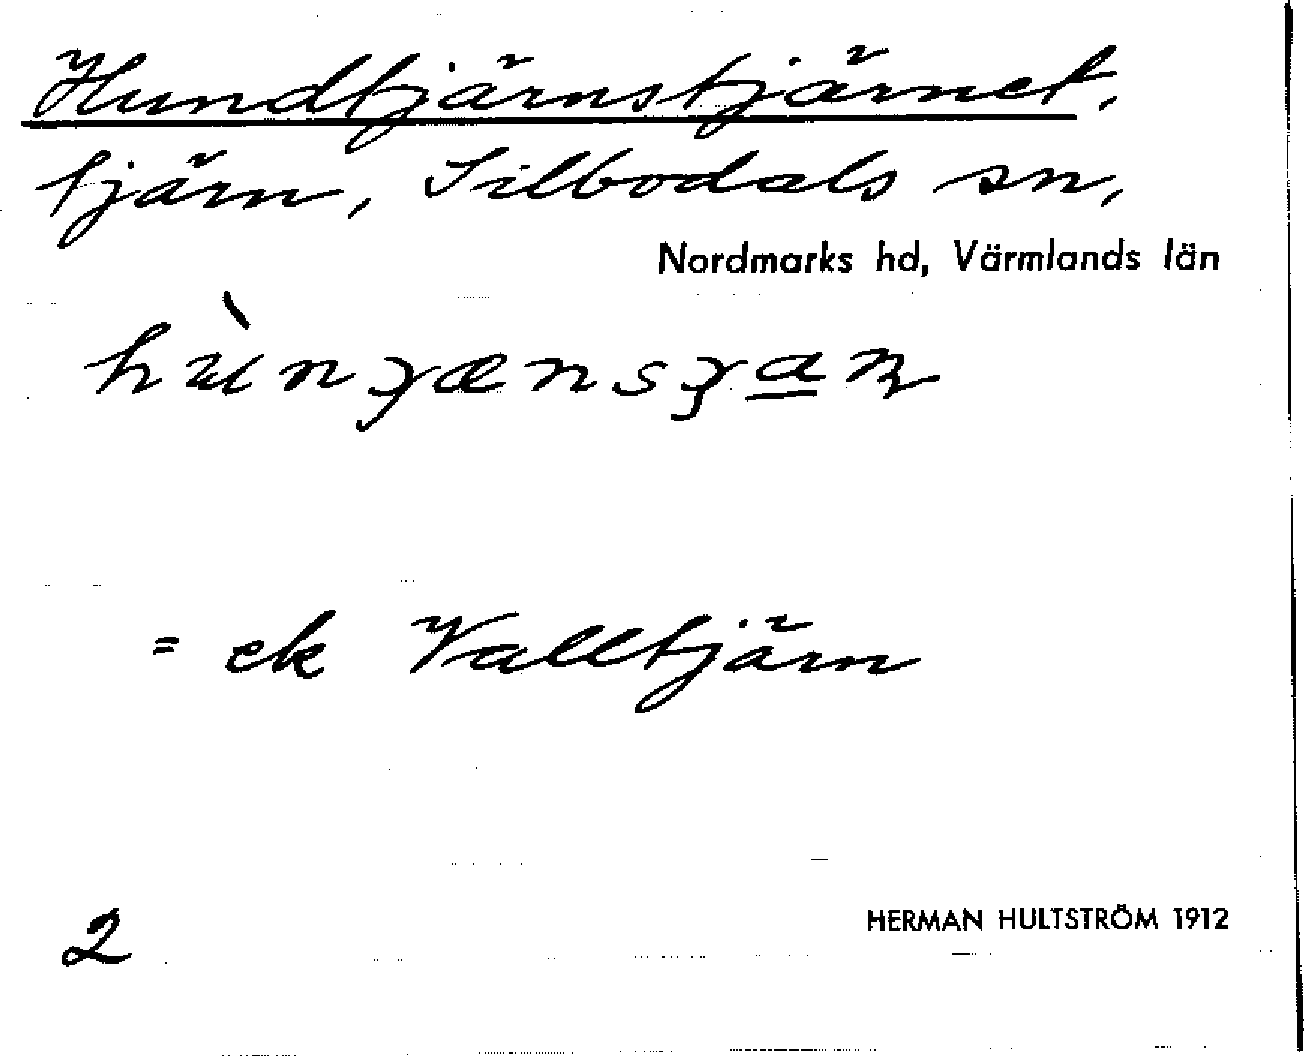 Hundtjärnstjärnet,
tjärn, Silbodals sn,
Nordmarks hd, Värmlands län
= ek Valltjärn
2
HERMAN HULTSTRÖM 1912